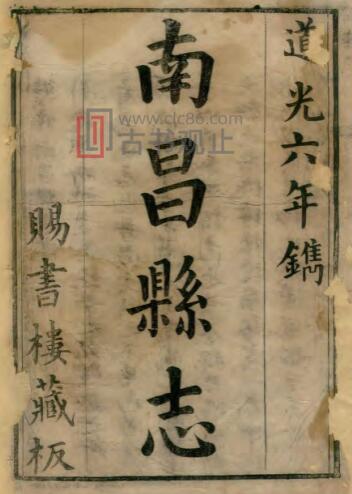 道光六年鐫
南昌縣志
賜書樓藏板
www.clc86.com
古书观止